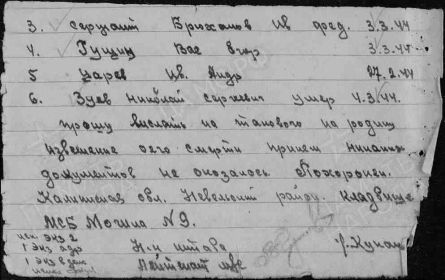 3. сержант Брюханов Ив фед. 3.3.44
4. Гущин Вас 3.3.44
5 Царев Ив. Андр 27.2.44
6. Зуев николай сергиевич умер 4.3.44.
прошу выслать на такового на родину
извещение о его смерти причем никаких
документов не оказалось. Похоронен.
Калининская обл. Невельский район. кладбище
МСБ Могила N9.
1 экз
1 экз
Н-к штаба
Лейтенант